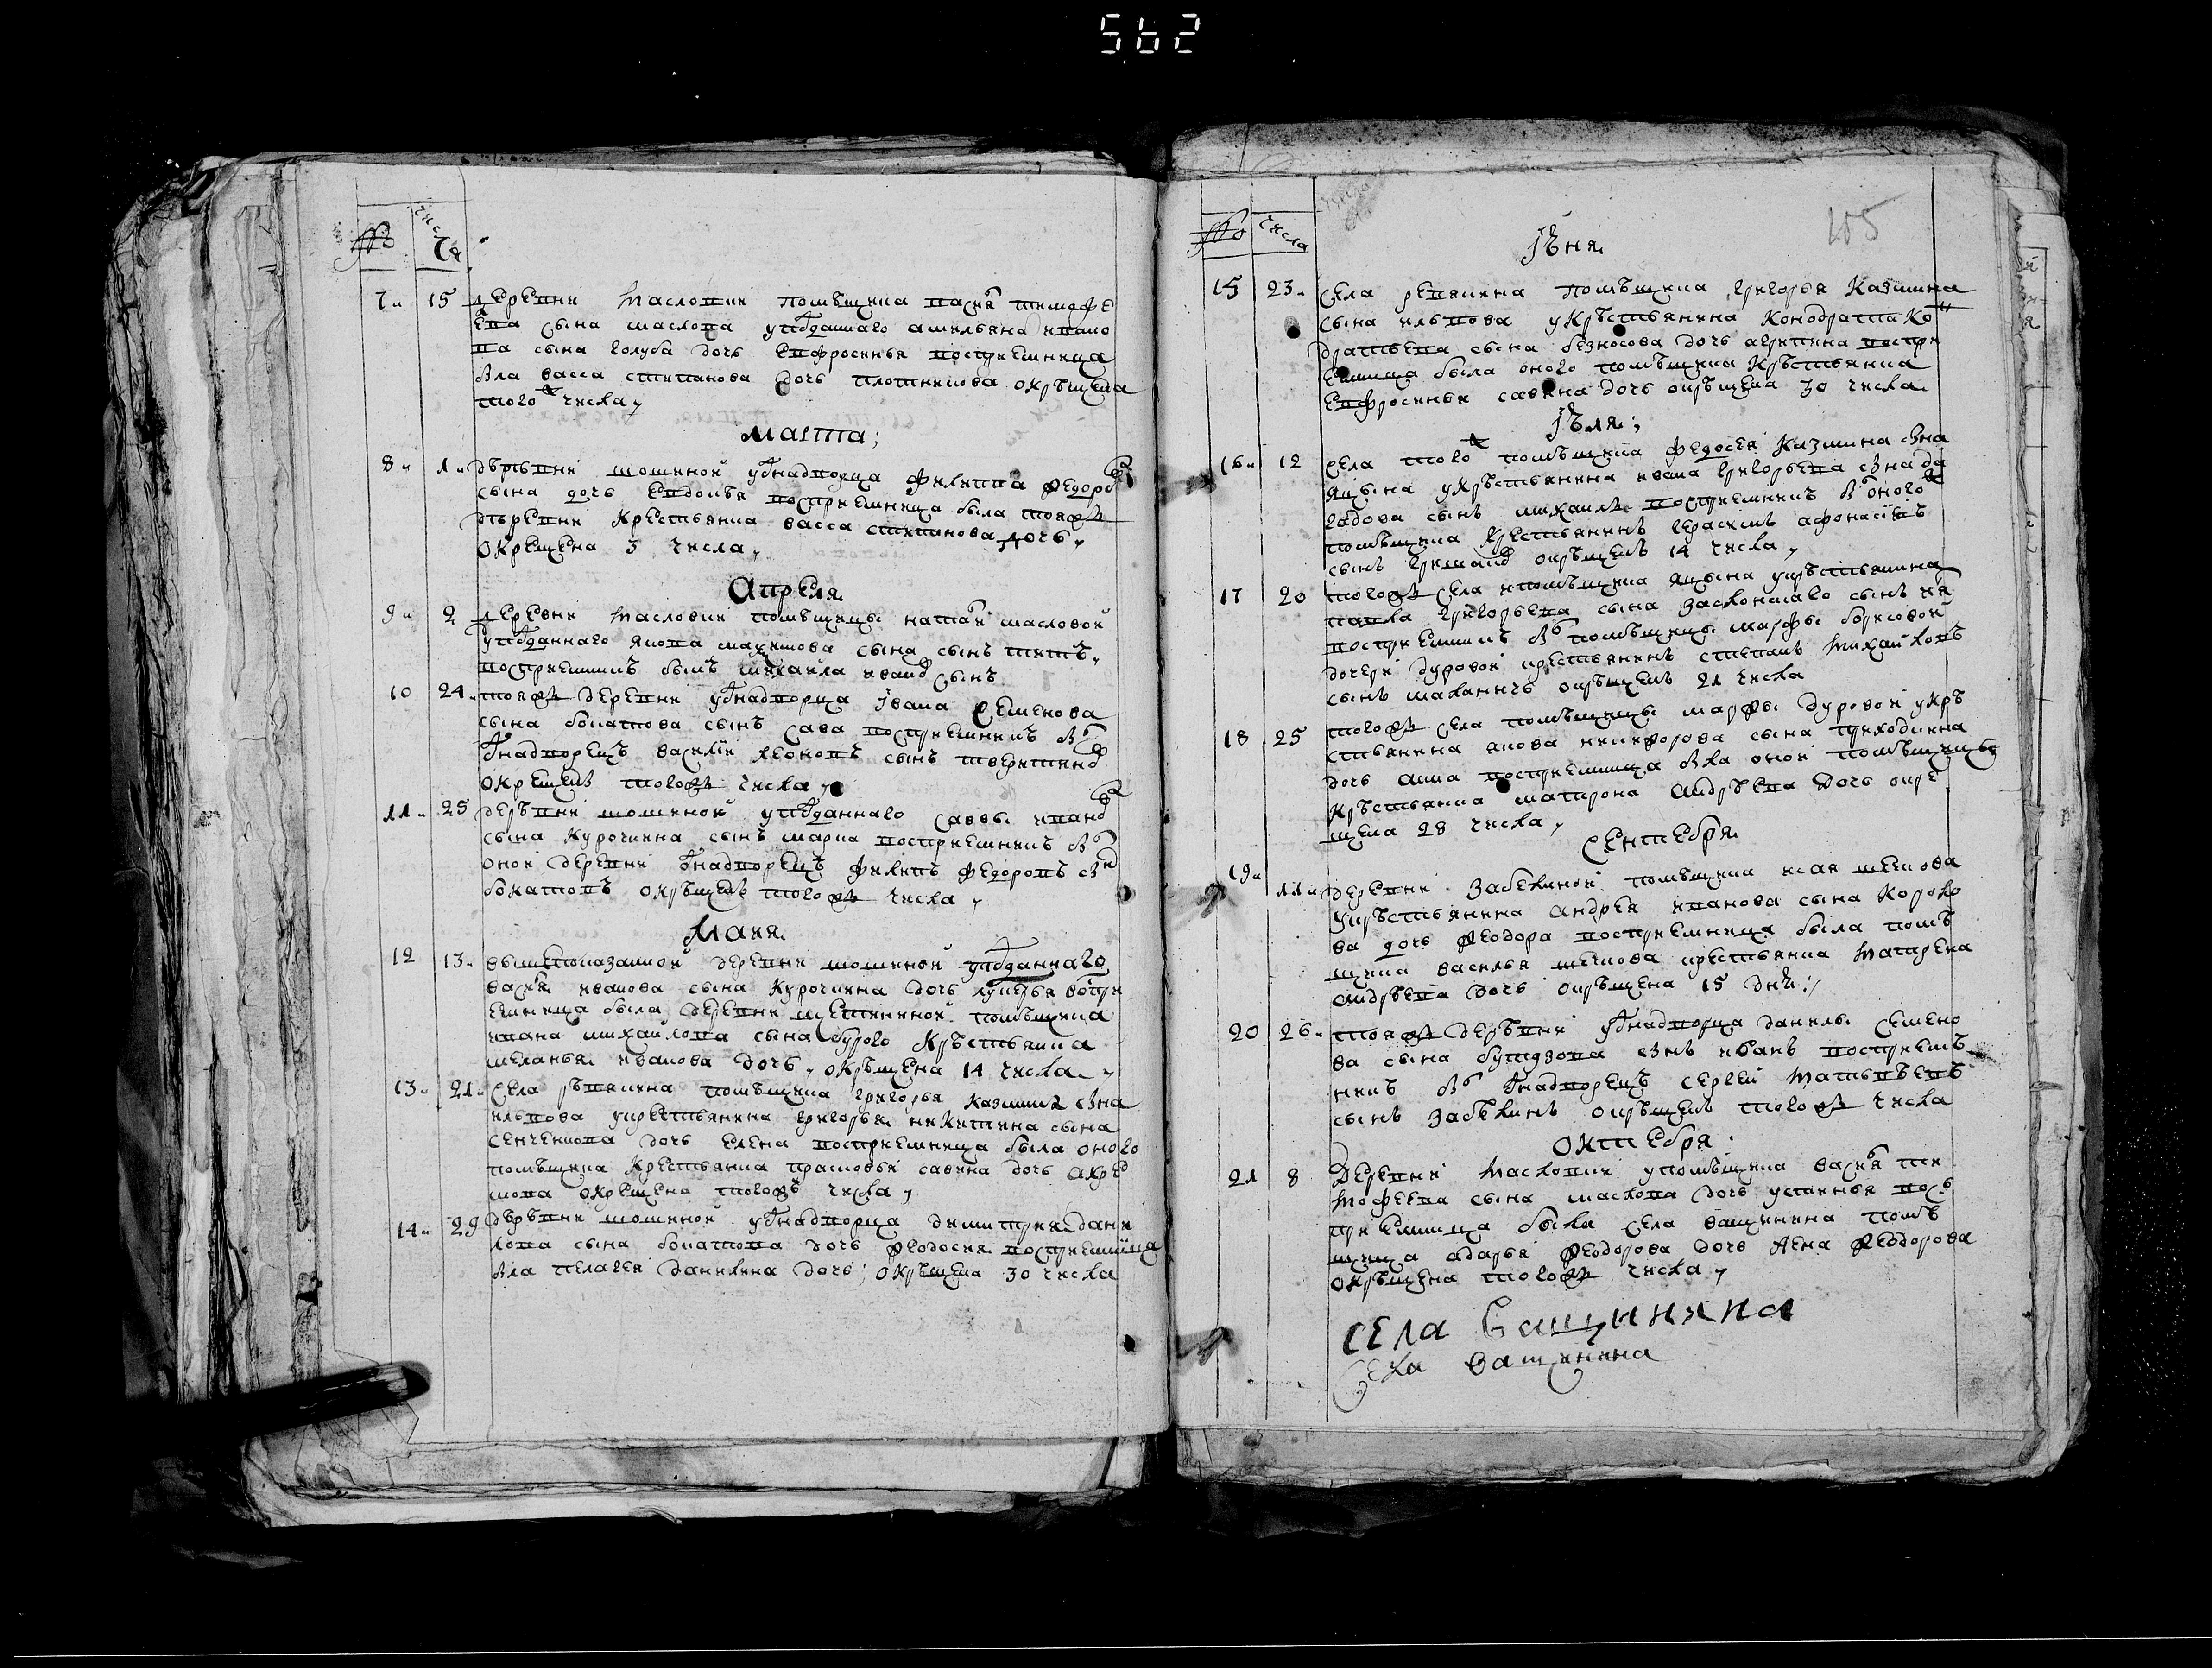 562
№ числа
7 15 деревни Масловки помещика василя тимофе
ева сына маслова упѡданнаго амельяна ивано
ва сына голуба дочь Евфросинья восприемница
была васса степанова дочь плотникова окрѣщена
того ж числа
Марта;
8 1 дѣрѣвни мошеной у однадворца филиппа федоров
сына дочь Евдокѣя восприемница была тояж
дѣревни крестьянка васса степанова дочь
окрещена 3 числа
Апреля
9 2 деревни Масловки помѣщицы наталi масловой
у подданнаго якова максимова сына сынъ титъ
восприемникъ былъ михайла иванов сынъ
10 24 тояж деревни у однадворца Iвана Семенова
сына болатова сынъ сава восприемникъ был
однадворецъ василiй леоновъ сынъ
окрещенъ тогож числа
11 25 дерѣвни мошеной у подданнаго саввы иванов
сына курочкина сынъ марка восприемникъ был
оной деревни однадворецъ филипъ федоровъ снъ
болатовъ окрѣщенъ тогож числа
Маия
12 13 вышепоказанной деревни мошеной у подданнаго
василя иванова сына курочкина дочь лукерья воспри
емница была деревни щетининой помѣщика
ивана михайлова сына бурого крѣстьянка
меланья иванова дочь окрѣщена 14 числа
13 21 села рѣпякина помѣщика григорья казмина сна
ильнова у крестьянина григорья никитина сына
сенченкова дочь елена восприемница была оного
помѣщика крестьянка прасковья савина дочь
окрещена тогож числа
14 29 дѣрѣвни мошеной у однадворца димитрия дани
лова сына болатова дочь феодосия восприемница
была пелагея данилина дочь; окрѣщена 30 числа
№ числа
105
Iюня
15 23 села репякина помѣщика григорья казмина
сына ильнова у крѣстьянина кондрата кон
дратьева сына безносова дочь агрипина воспри
емница была оного помѣщика крѣстьянка
Евфросинья савина дочь окрѣщена 30 числа
Iюля;
16 12 села того ж помѣщика федосея казмина сна
яцына у крѣстьянина ивана григорьева сна
гадова сынъ михаилъ восприемникъ былъ оного ж
помѣщика крестьянинъ герасимъ афонасiевъ
сынъ окрѣщенъ 14 числа
17 20 тогож села и помѣщика яцына у крѣстьянина
павла григорьева сына заслонкаго сынъ
восприемникъ былъ помѣщицы марфы борисовой
дочери дуровой крестьянинъ степанъ михайловъ
сынъ окрѣщенъ 21 числа
18 25 тогож села помѣщицы марфы дуровой у крѣ
стьянина якова никифорова сына приходкина
дочь анна восприемница была оной помѣщицы
крѣстьянка матрона андрѣева дочь окре
щена 28 числа
Сентебря
19 11 деревни забелиной помѣщика исая шенкова
у крѣстьянина андрея иванова сына короко
ва дочь феодора восприемница была помѣ
щика василья шенкова крестьянка матрена
андрѣева дочь окрѣщена 15 дня
20 26 тояж дерѣвни у однадворца данилы семено
ва сына сынъ иванъ восприем
никъ былъ однадворецъ сергей матвѣевъ
сынъ забелинъ окрѣщенъ тогож числа
Октебря
21 8 деревни масловки у помѣщика василя ти
мофеева сына маслова дочь устинья вос
приемница была села ващинина помѣ
щица адарья феодорова дочь
окрѣщена тогож числа
села Ващинина
села ващинина